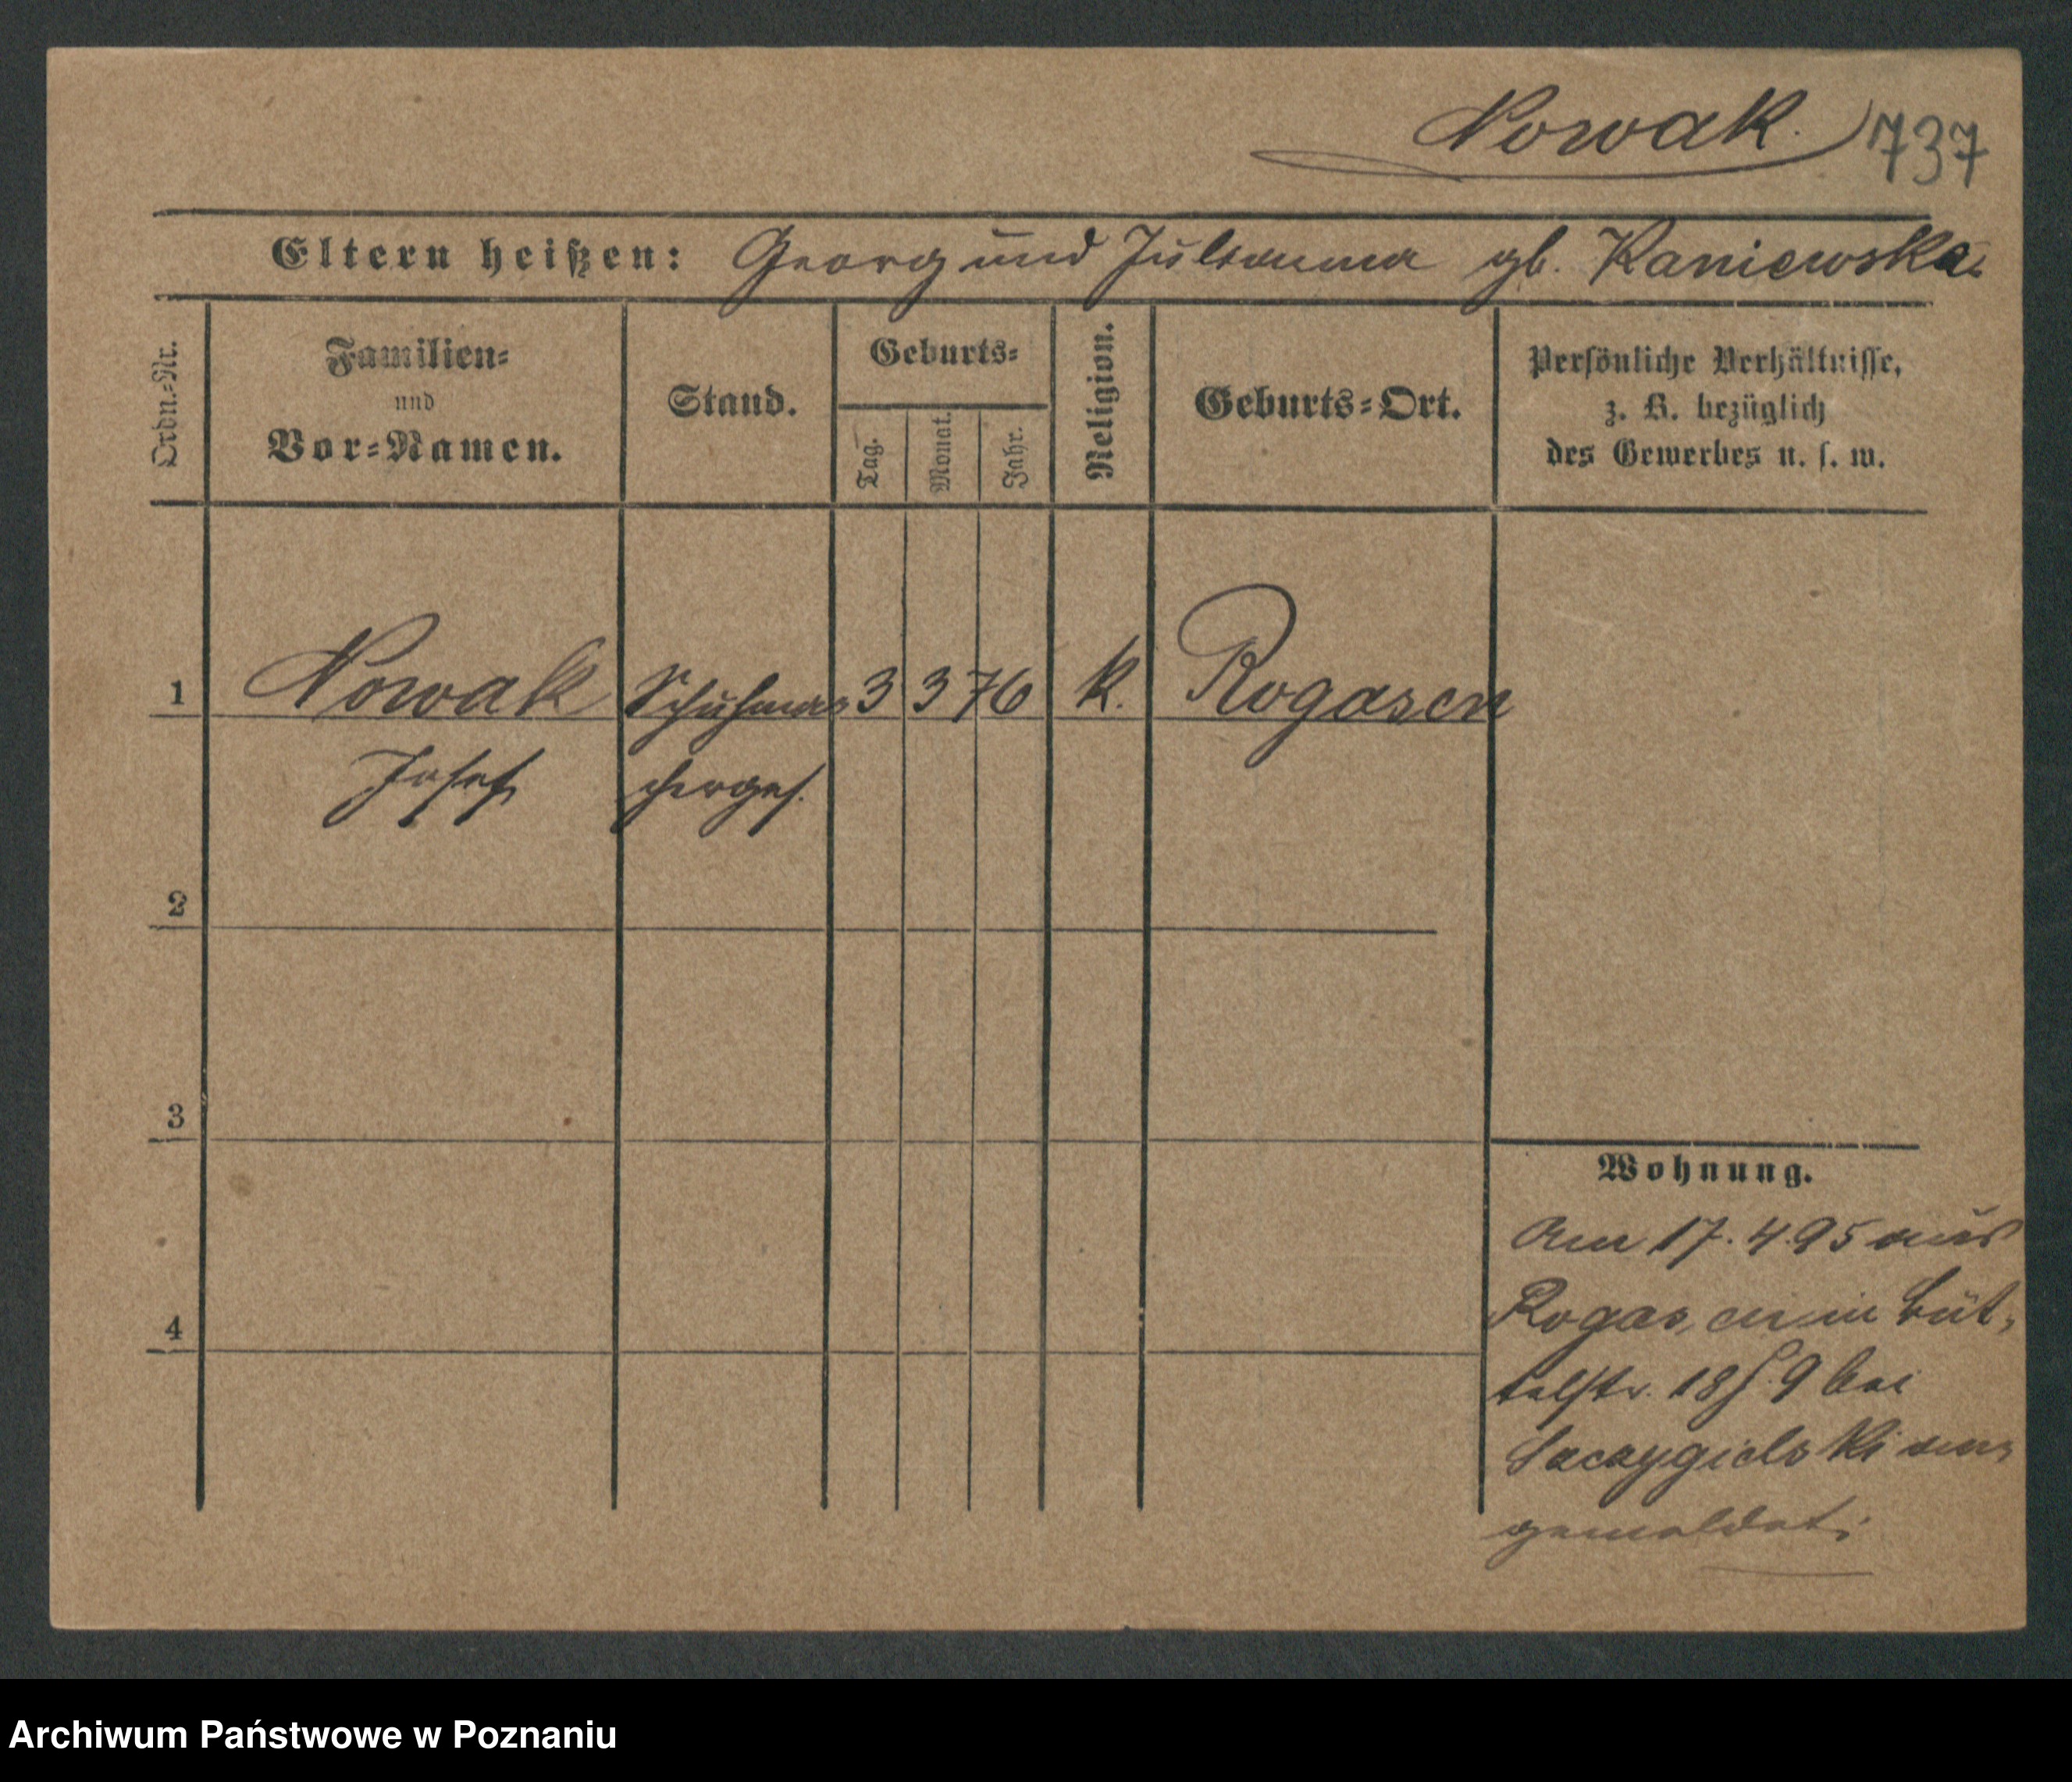 Nowak. 737
Eltern heißen: Georg und Julianna gb. Kaniewska.
Ordn.=Nr.
Familien=
und
Vor=Namen.
Stand.
Geburts=
Tag.
Monat.
Jahr.
Religion.
Geburts=Ort.
Persönliche Verhältnisse,
z. B. bezüglich
des Gewerbes u. s. w.
1 Nowak Schuhma 3 3 76 k. Rogasen
Josef cherges.
2
3
4
Wohnung.
Am 17. 4. 95 aus
Rogasen in Büt-
telstr. 18 9 bei
an-
gemeldet.
Archiwum Państwowe w Poznaniu